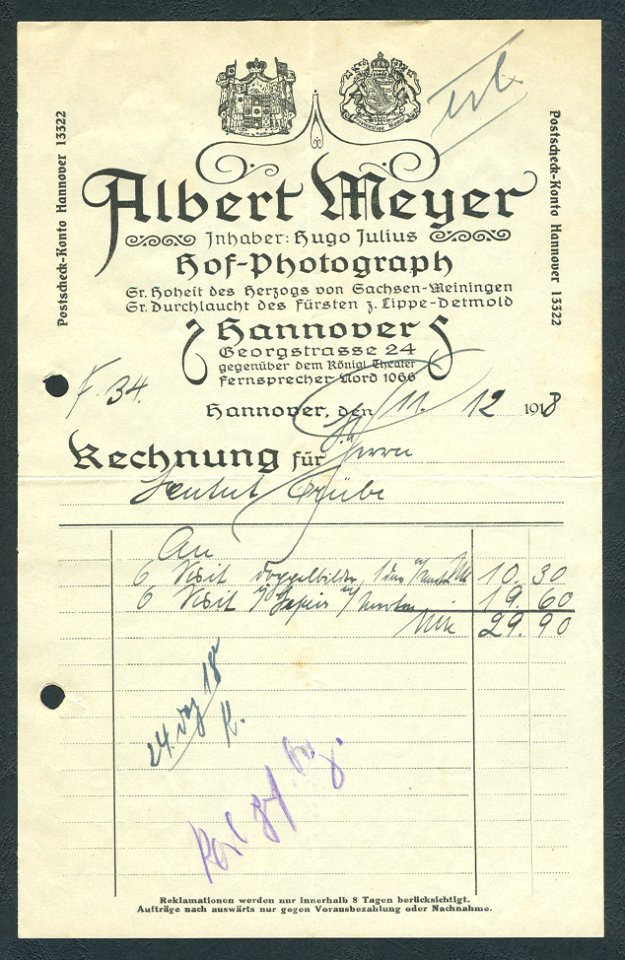 Albert Meyer
Inhaber: Hugo Julius
Hof-Photograph
Sr. Hoheit des Herzogs von Sachsen-Meiningen
Sr. Durchlaucht des Fürsten z. Lippe-Detmold
Hannover
Georgstrasse 24
gegenüber dem Königl. Theater
Fernsprecher Nord 1066
Postscheck-Konto Hannover 13322
Postscheck-Konto Hannover 13322
F. 34.
Hannover, den 11. 12 1918
Rechnung für Herrn
An
6 Visit Doppelbilder, 10.30
6 Visit 19.60
Mk 29.90
24. 18
Reklamationen werden nur innerhalb 8 Tagen berücksichtigt.
Aufträge nach auswärts nur gegen Vorausbezahlung oder Nachnahme.